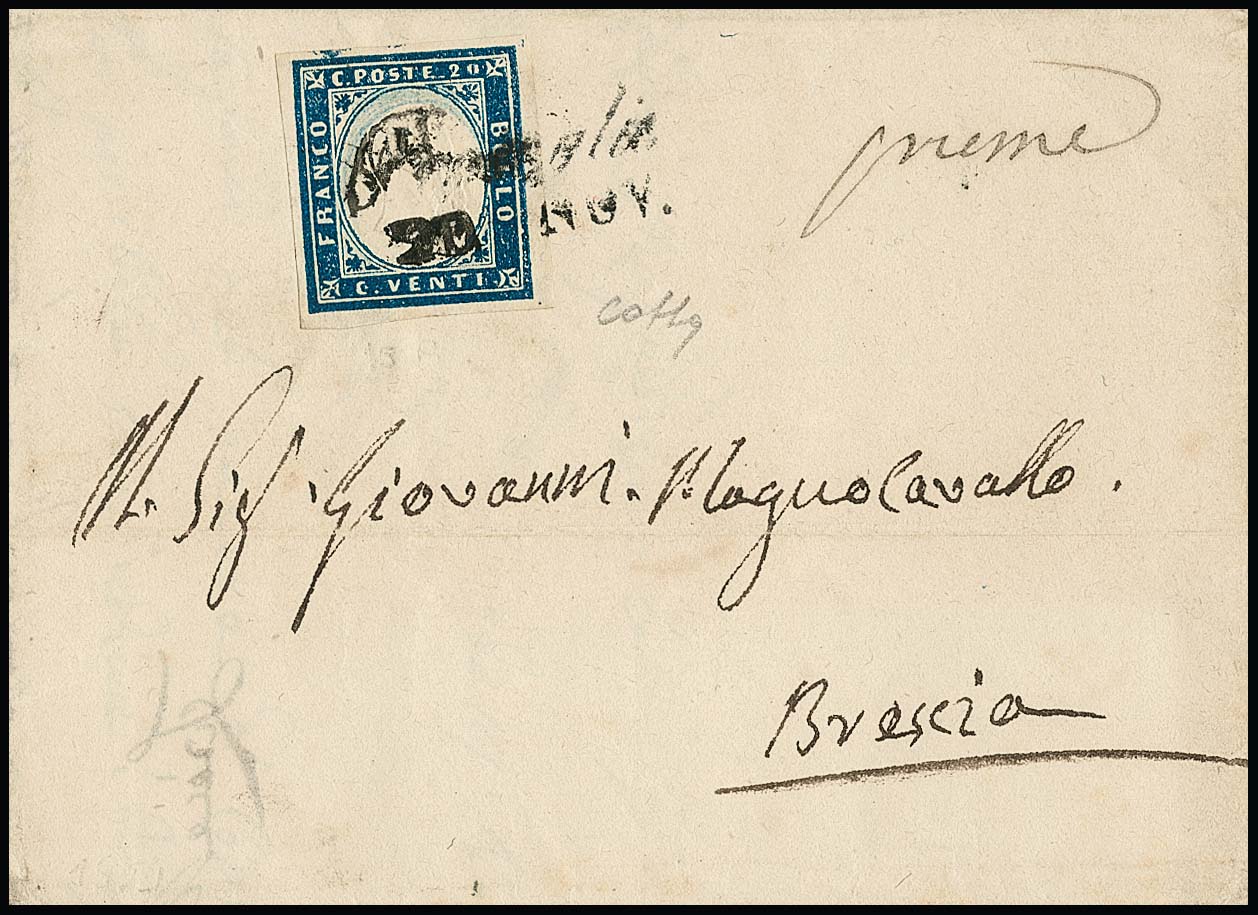 C. POSTE 20
FRANCO
BOLLO
C. VENTI.
20 NOV.
preme
Al Sig. Giovanni Magnocavallo.
Brescia